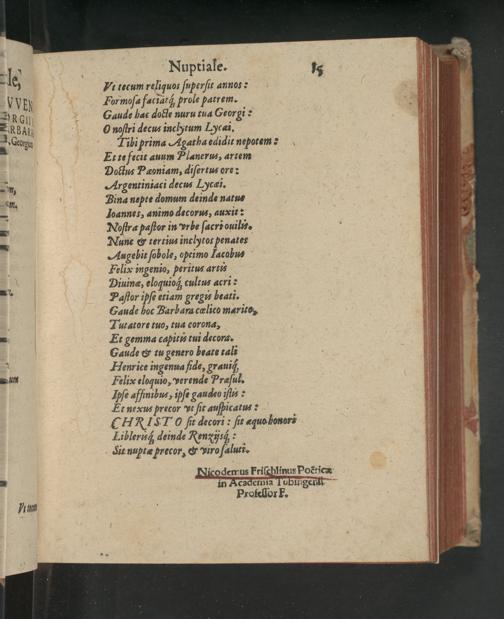 Nuptiale.
15
Vt tecum reliquos supersit annos:
Formosa faciatq́, prole patrem.
Gaude hac docte nuru tua Georgi:
O nostri decus inclytum Lycæi.
Tibi prima Agatha edidit nepotem:
Et te fecit auum Planerus, artem
Doctus Pæoniam, disertus ore:
Argentiniaci decus Lycæi.
Bina nepte domum deinde natus
Ioannes, animo decorus, auxit:
Nostra pastor in vrbe sacri ouilis.
Nunc & tertius inclytos penates
Augebit sobole, optimo Iacobus
Felix ingenio, peritus artis
Diuinæ, eloquioq́, cultus acri:
Pastor ipse etiam gregis beati.
Gaude hoc Barbara cœlico marito,
Tutatore tuo, tua corona,
Et gemma capitis tui decora.
Gaude & tu genero beate tali
Henrice ingenua fide, grauiq́,
Felix eloquio, verende Præsul.
Ipse affinibus, ipse gaudeo istis:
Et nexus precor vt sit auspicatus:
CHRISTO sit decori: sit æquo honori
Liblerisq́, deinde Renzijsq́:
Sit nuptæ precor, & viro saluti.
Nicodemus Frischlinus Poëticæ
in Academia Tubingensi
Professor F.
Vt tecum
VVEN
ORGII
RBARA
Georgius